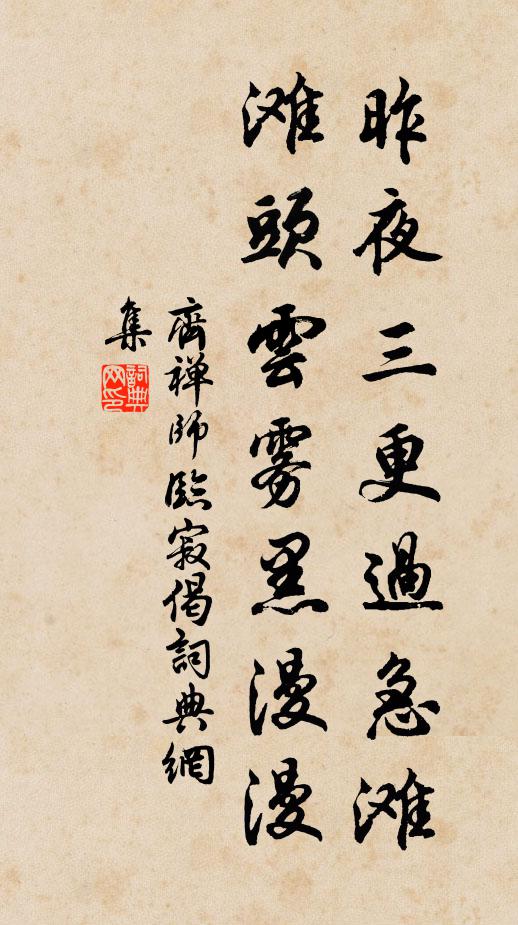 昨夜三更過急滩
滩頭雲雾黑漫漫
齊禅師臨寂偈詞典網
集
詞典网印